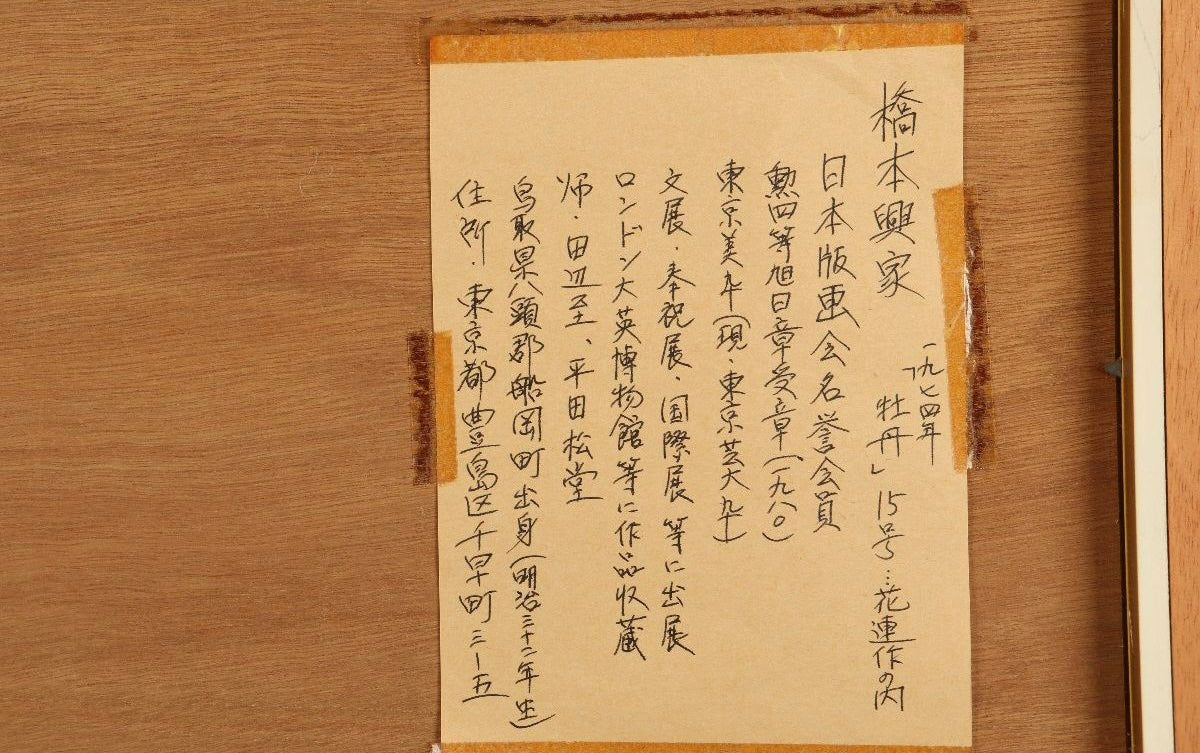 橋本興家
一九七四年
「牡丹」15号…花連作の内
日本版画会名誉会員
勲四等旭日章受章(一九八〇)
東京美卆(現・東京芸大卆)
文展・奉祝展・国際展等に出展
ロンドン大英博物館等に作品収蔵
师・田辺至、平田松堂
鳥取県八頭郡船岡町出身(明治三十二年生)
住所・東京都豊島区千早町三ー五